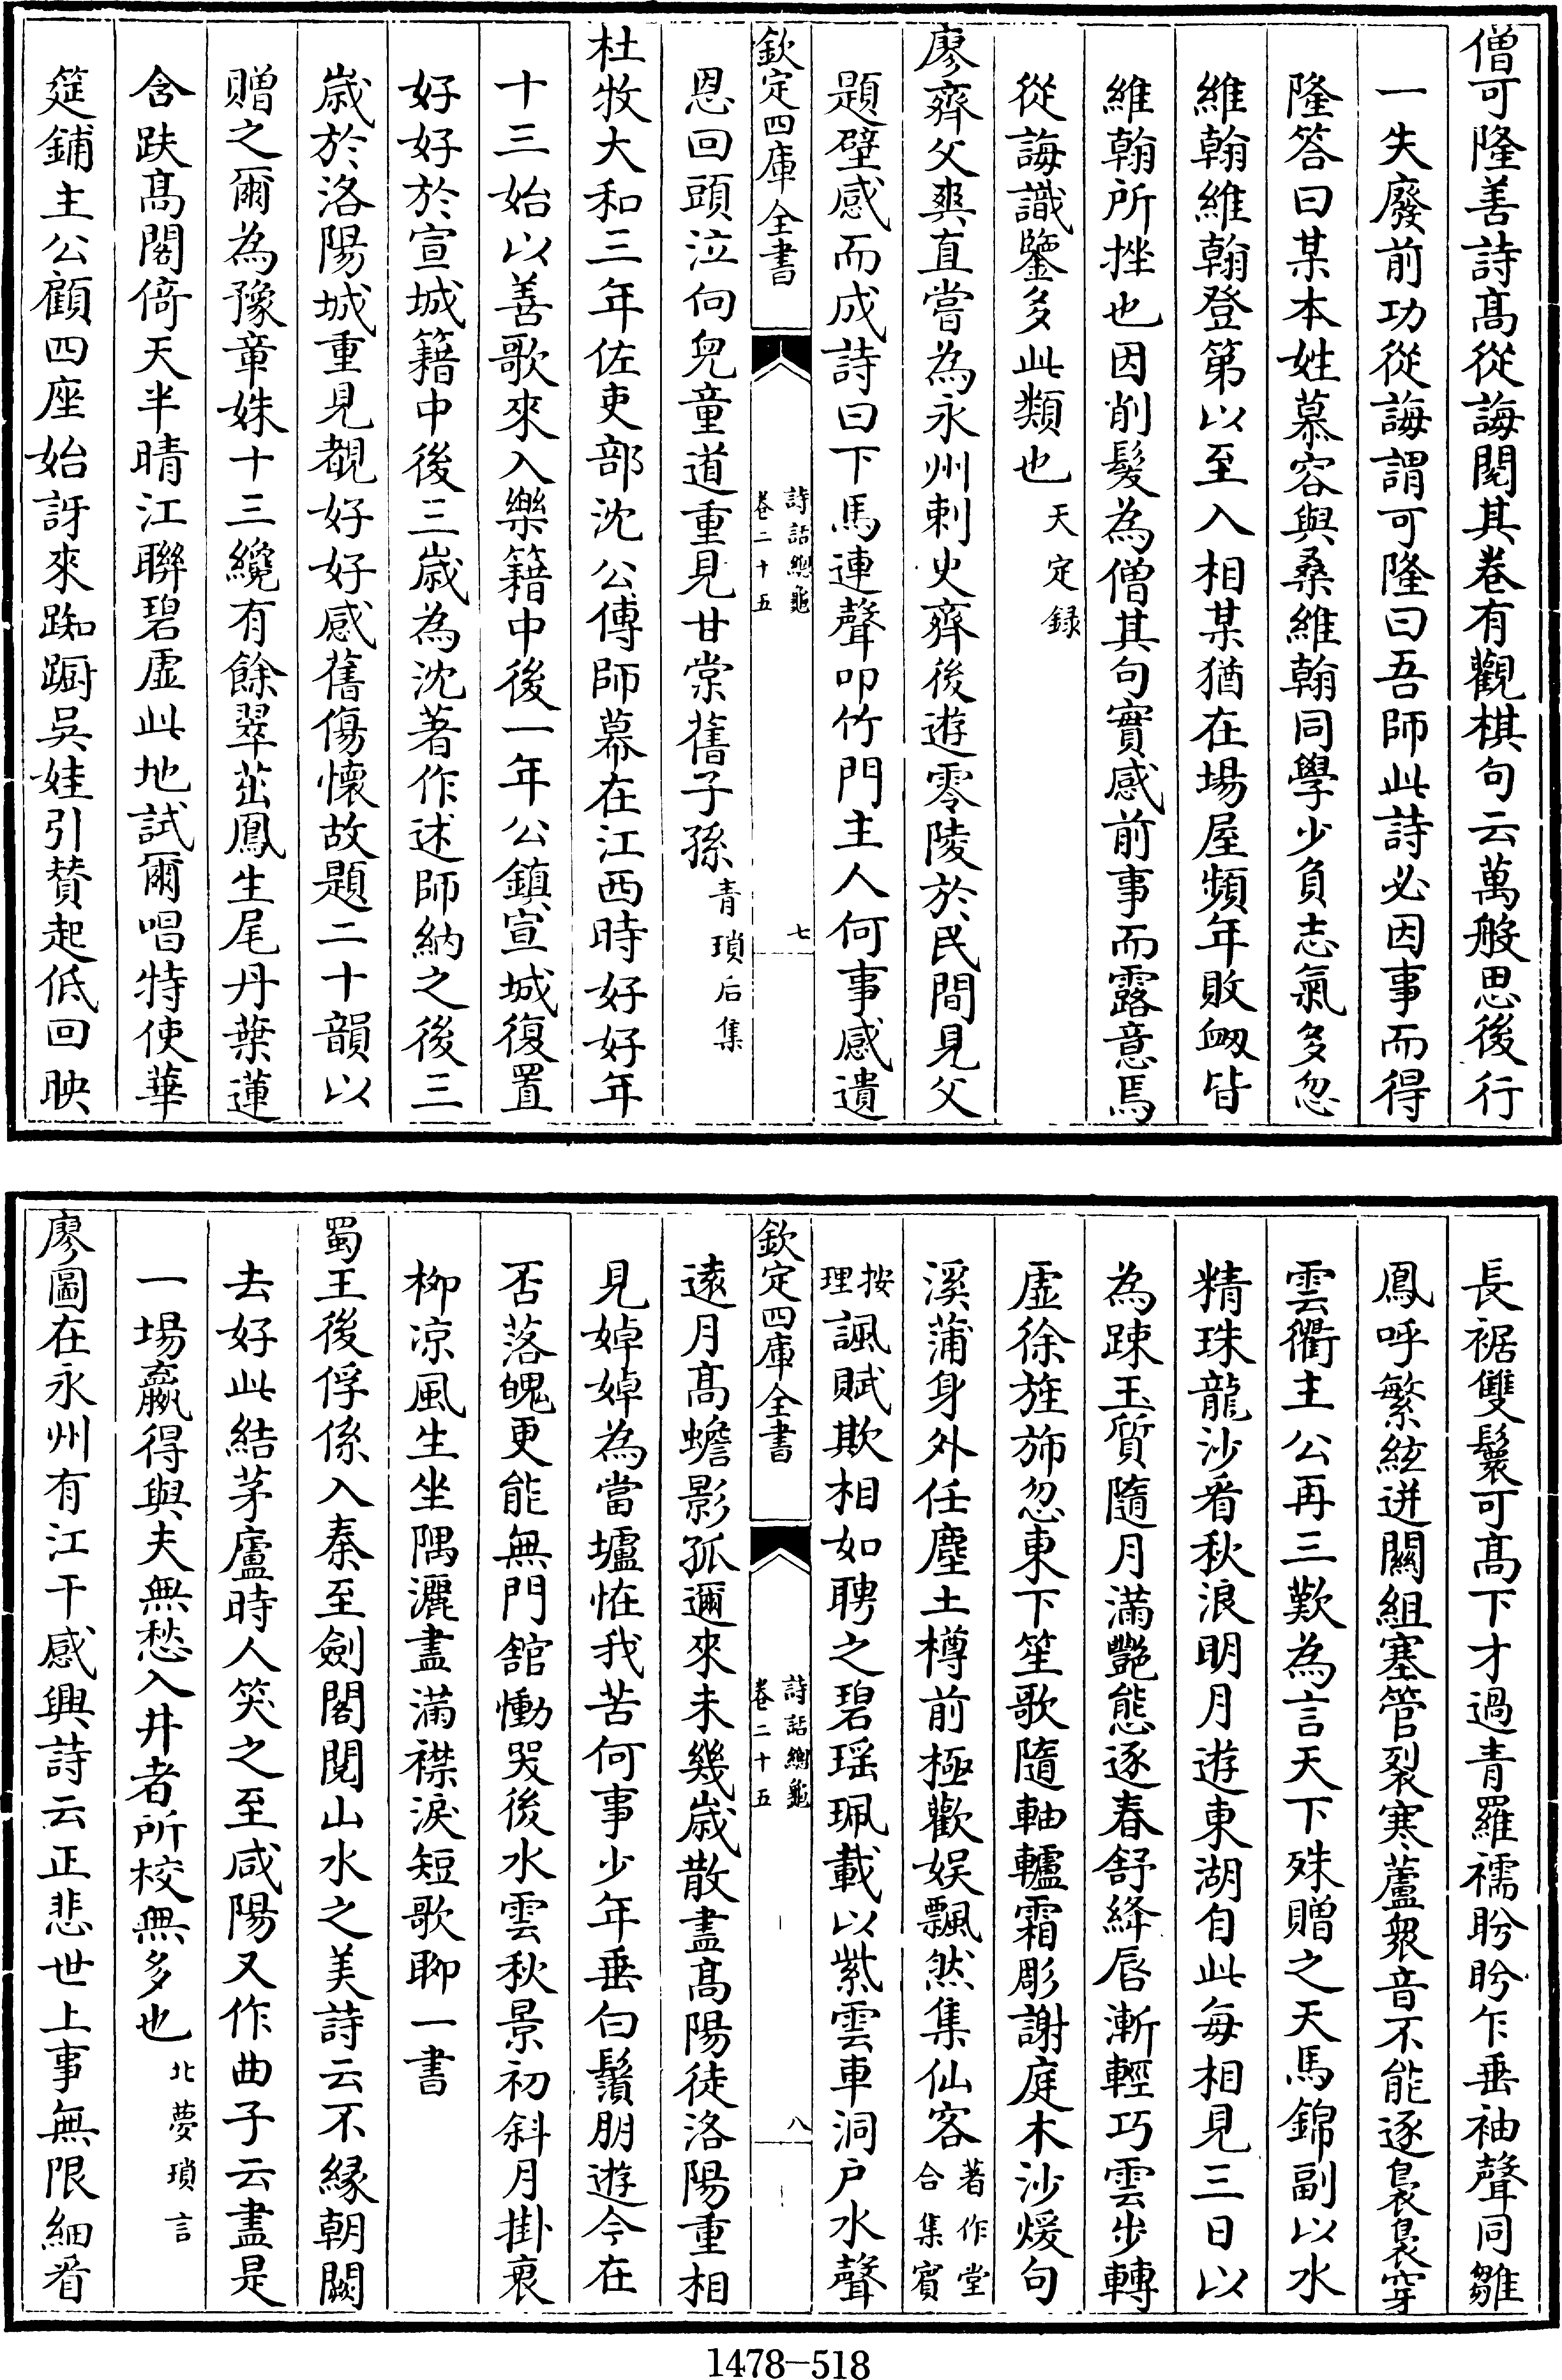 僧可隆善詩髙從誨閱其卷有觀棋句云萬般思後行
一失廢前功從誨謂可隆曰吾師此詩必因事而得
隆答曰某本姓慕容與桑維翰同學少負志氣多忽
維翰維翰登第以至入相某猶在場屋頻年敗衂皆
維翰所挫也因削髮為僧其句實感前事而露意焉
從誨識鑒多此類也天定録
廖齊父爽直嘗為永州刺史齊後遊零陵於民間見父
題壁感而成詩曰下馬連聲叩竹門主人何事感遺
欽定四庫全書
詩話總龜
卷二十五
七
恩回頭泣向兒童道重見甘棠舊子孫青瑣后集
杜牧大和三年佐吏部沈公傳師幕在江西時好好年
十三始以善歌來入樂籍中後一年公鎮宣城復置
好好於宣城籍中後三歳為沈著作述師納之後三
歳於洛陽城重見覩好好感舊傷懷故題二十韻以
贈之爾為豫章姝十三纔有餘翠茁鳳生尾丹葉蓮
含趺髙閣倚天半晴江聯碧虚此地試爾唱特使華
筵鋪主公顧四座始訝來踟蹰吳娃引賛起低回映
長裾雙鬟可髙下才過青羅襦盻盻乍垂袖聲同雛
鳳呼繁絃迸關組塞管裂寒蘆衆音不能逐裊裊穿
雲衢主公再三歎為言天下殊贈之天馬錦副以水
精珠龍沙看秋浪明月遊東湖自此每相見三日以
為踈玉質隨月滿艷態逐春舒絳唇漸輕巧雲步轉
虚徐旌斾忽東下笙歌隨軸轤霜彫謝庭木沙煖句
溪蒲身外任塵土樽前極歡娱飄然集仙客著作堂合集賓
按理諷賦欺相如聘之碧瑶珮載以紫雲車洞户水聲
欽定四庫全書
詩話總龜
卷二十五
八
逺月髙蟾影孤邇來未幾歳散盡髙陽徒洛陽重相
見婥婥為當壚怪我苦何事少年垂白鬚朋遊今在
否落魄更能無門舘慟哭後水雲秋景初斜月掛衰
柳凉風生坐隅灑盡滿襟淚短歌聊一書
蜀王後俘係入秦至劍閣閱山水之美詩云不縁朝闕
去好此結茅廬時人笑之至咸陽又作曲子云盡是
一場嬴得與夫無愁入井者所校無多也北夢瑣言
廖圖在永州有江干感興詩云正悲世上事無限細看
1478—518